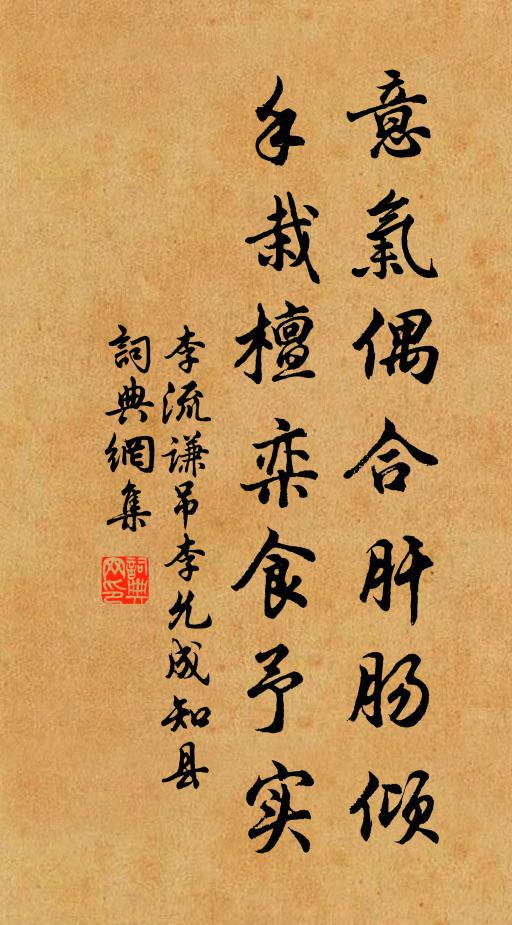 意氣偶合肝肠倾
手栽檀栾食予实
李流谦吊李允成知县
詞典網集
詞典网印